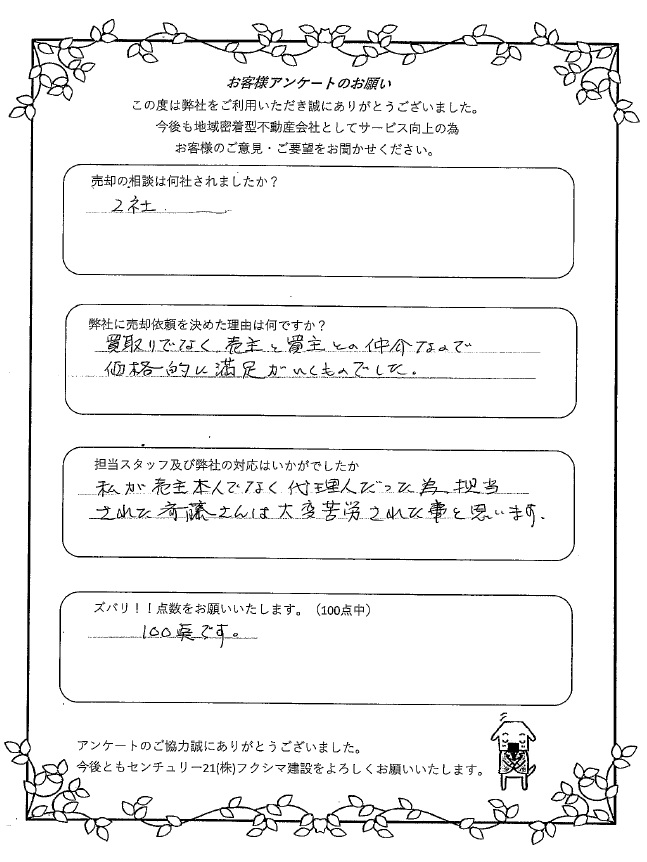 お客様アンケートのお願い
この度は弊社をご利用いただき誠にありがとうございました。
今後も地域密着型不動産会社としてサービス向上の為
お客様のご意見・ご要望をお聞かせください。
売却の相談は何社されましたか？
2社
弊社に売却依頼を決めた理由は何ですか？
買取りでなく売主と買主との仲介なので
価格的に満足がいくものでした。
担当スタッフ及び弊社の対応はいかがでしたか
私が売主本人でなく代理人だった為、担当
された斉藤さんは大変苦労された事と思います.
ズバリ！！点数をお願いいたします。（100点中）
100点です。
アンケートのご協力誠にありがとうございました。
今後ともセンチュリー21(株)フクシマ建設をよろしくお願いいたします。